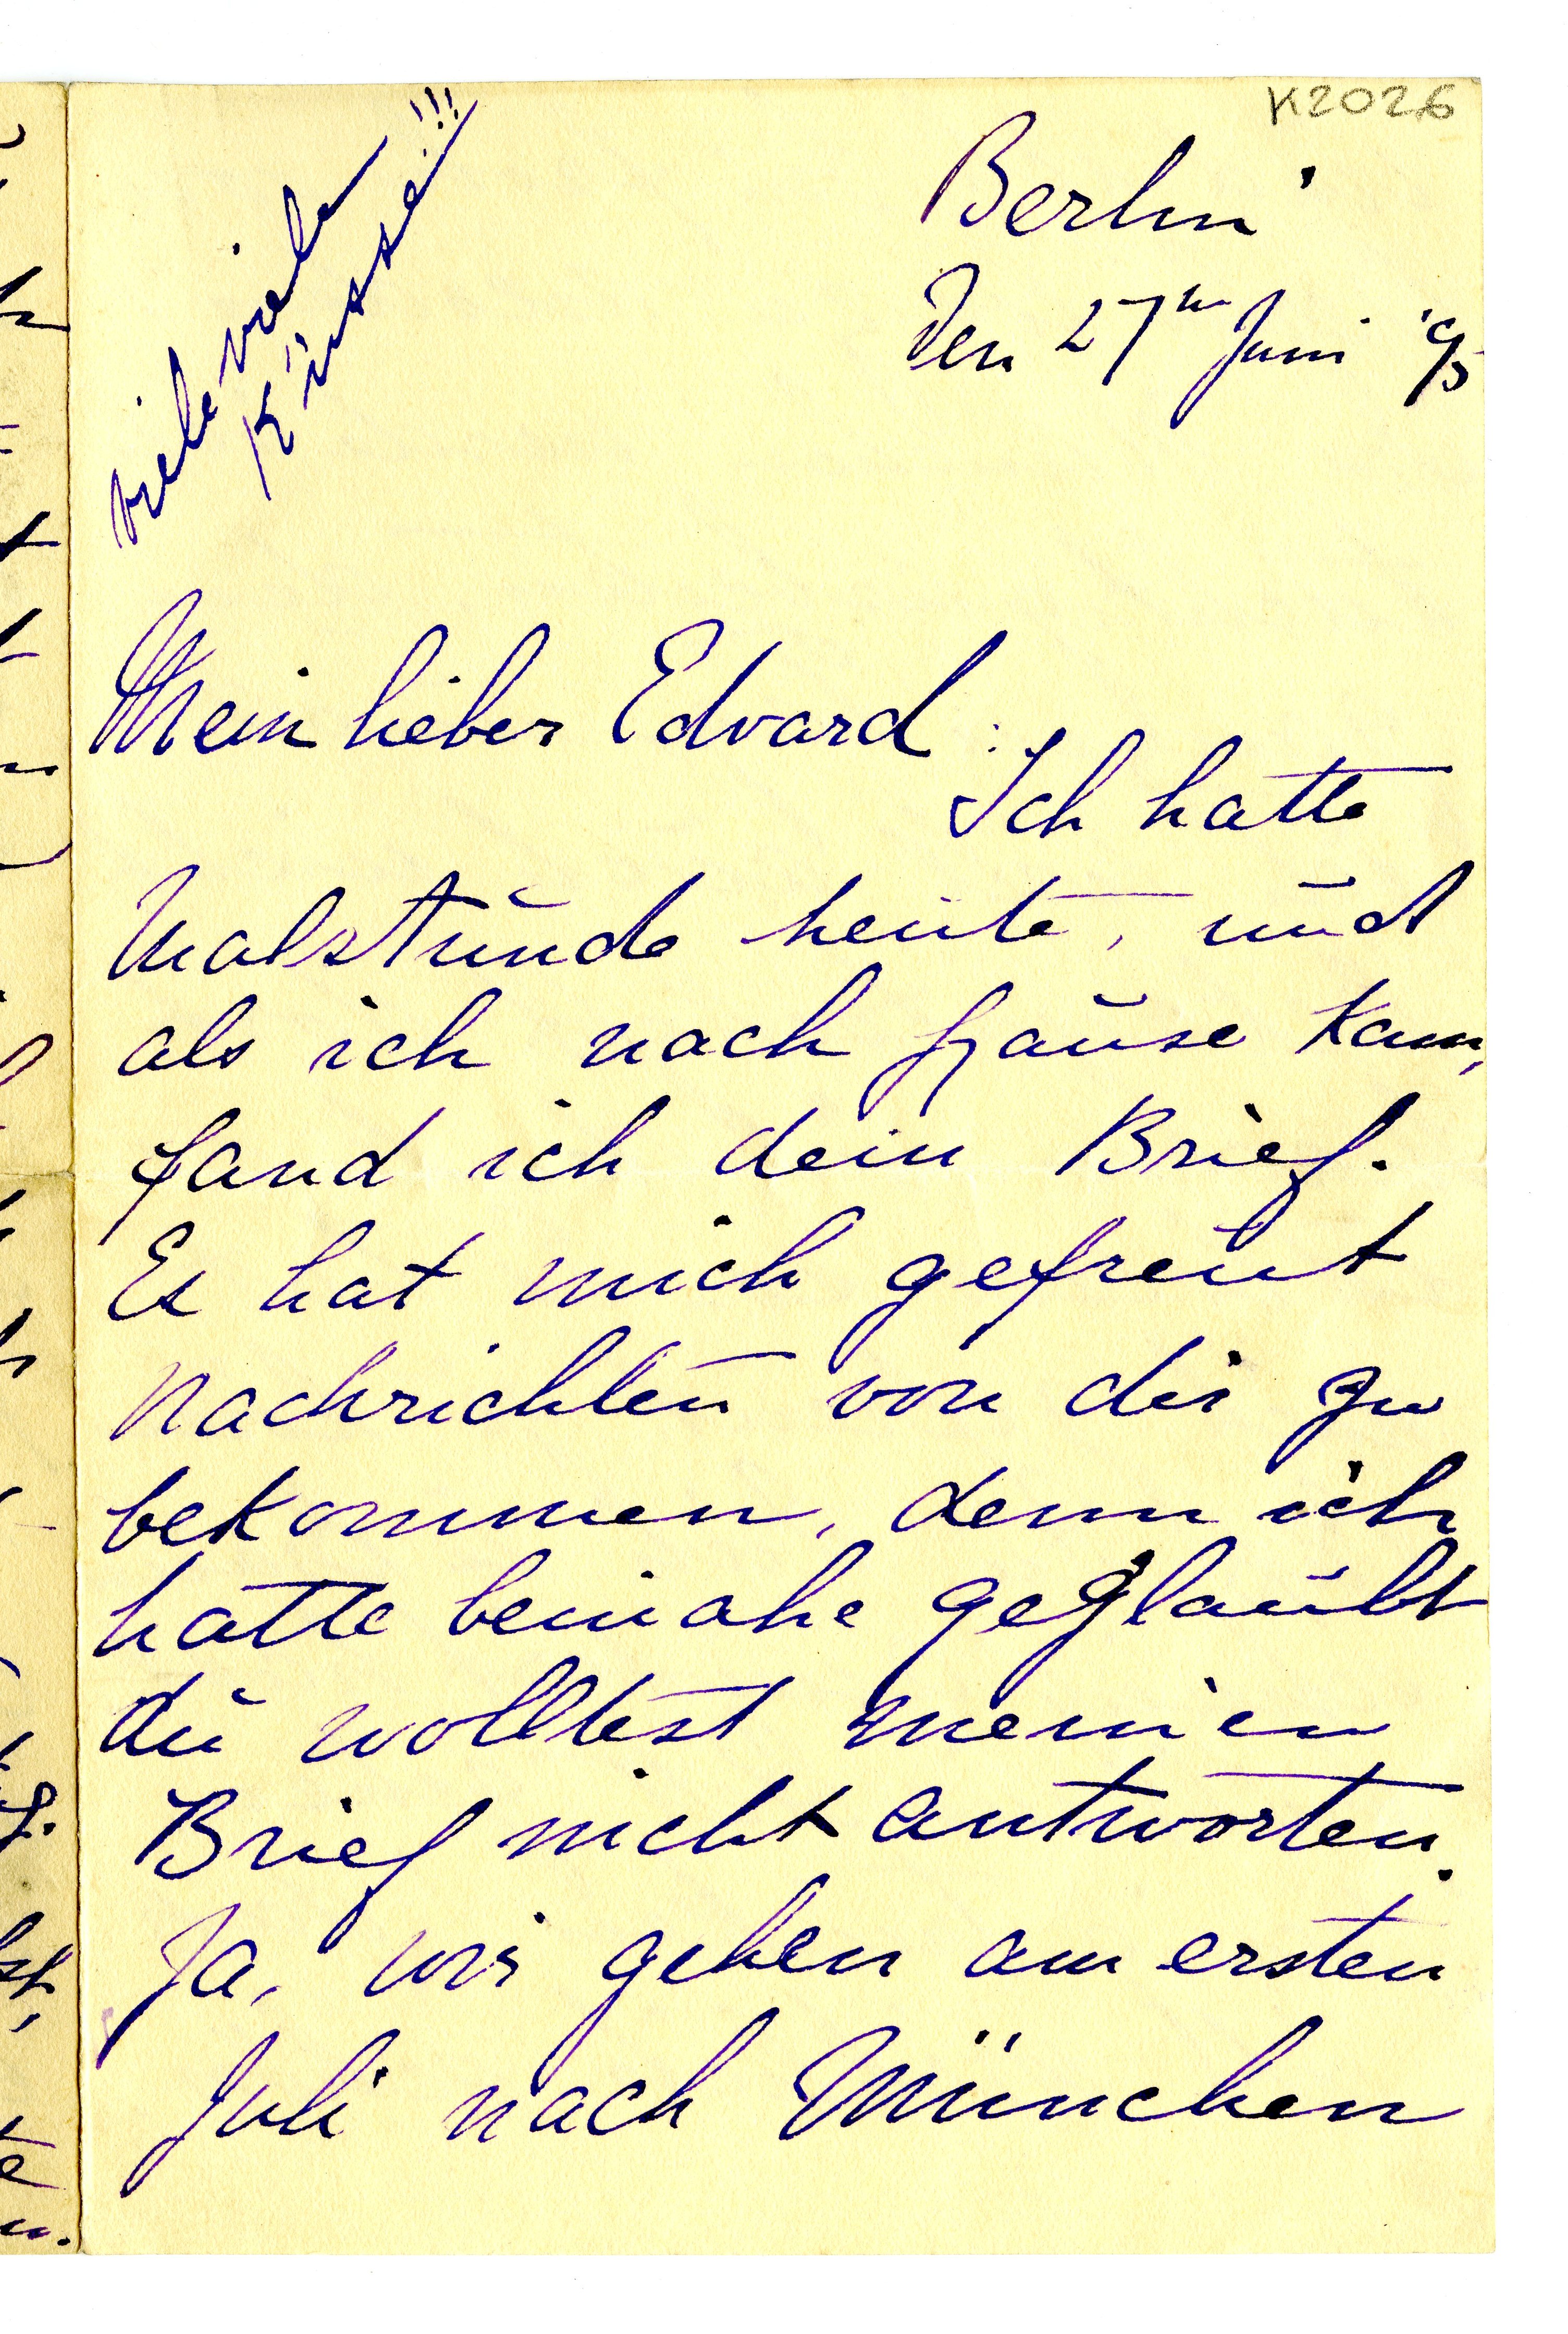 K2026
Berlin
Den 27ten Juni '05
viele viele
Küsse!!!
Mein lieber Edvard:
Ich hatte
Malstunde heute, und
als ich nach Hause kam,
fand ich dein Brief.
Es hat mich gefreut
Nachrichten von dir zu
bekommen, denn ich
hatte beinahe geglaubt
du wolltest meinen
Brief nicht antworten.
Ja, wir gehen am ersten
Juli nach München